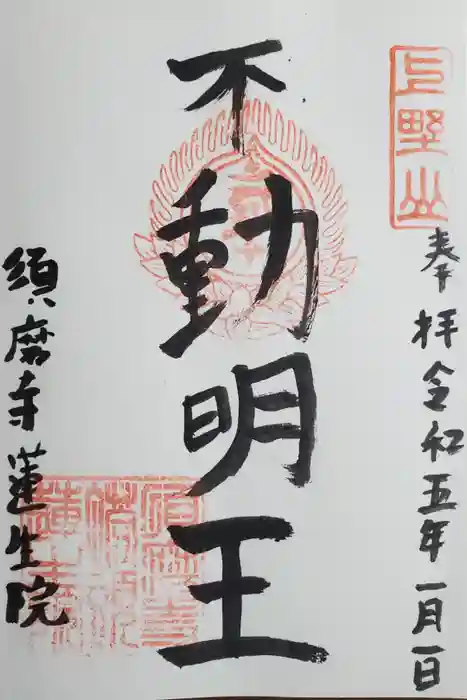 上野山
奉拝 令和五年一月一日
不動明王
須磨寺 蓮生院